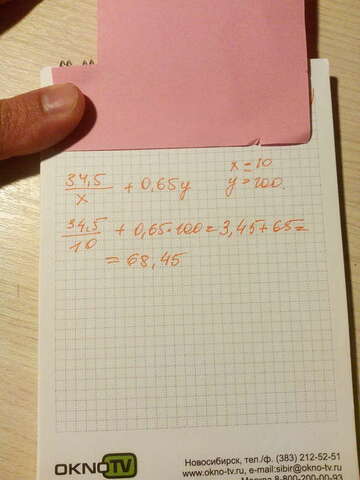 34,5/x + 0,65y
x = 10
y = 100.
34,5/10 + 0,65·100 = 3,45 + 65 =
= 68,45
OKNOTV
Новосибирск, тел./ф. (383) 212-52-51
www.okno-tv.ru, e-mail:sibir@okno-tv.ru
Москва 8-800-200-00-93